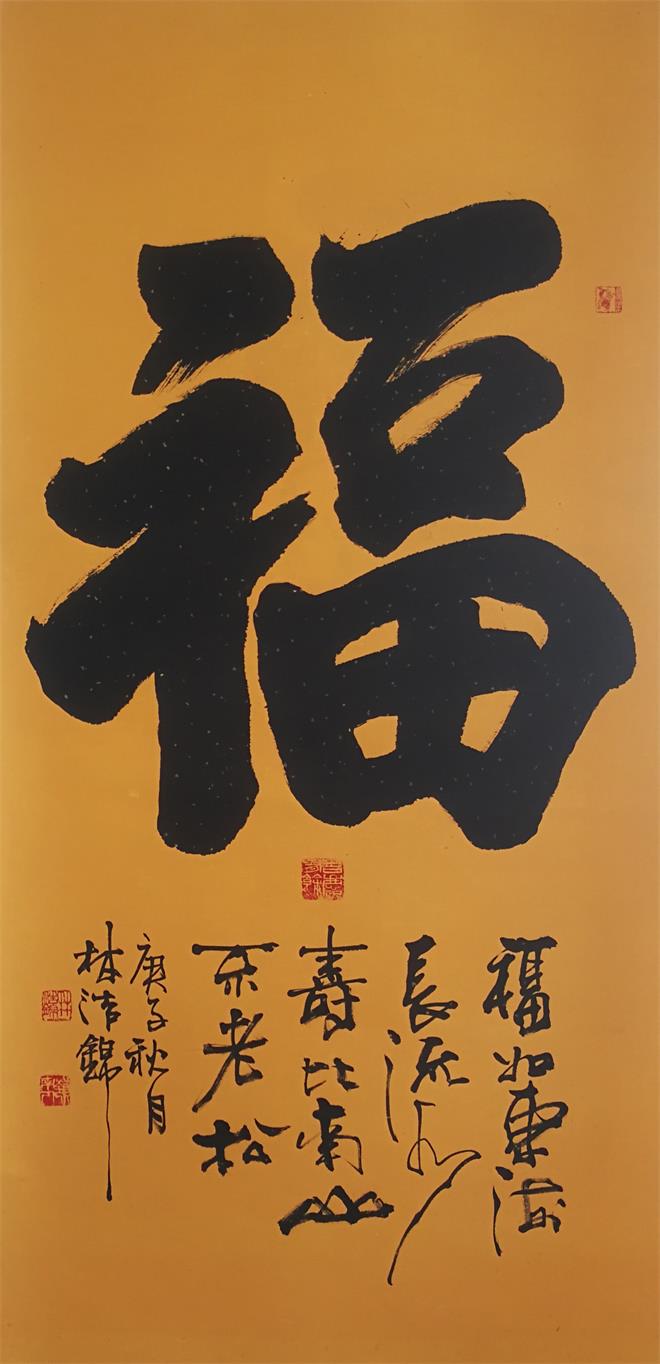 福
福如東海
長流水
壽比南山
不老松
庚子秋月
林浩錦